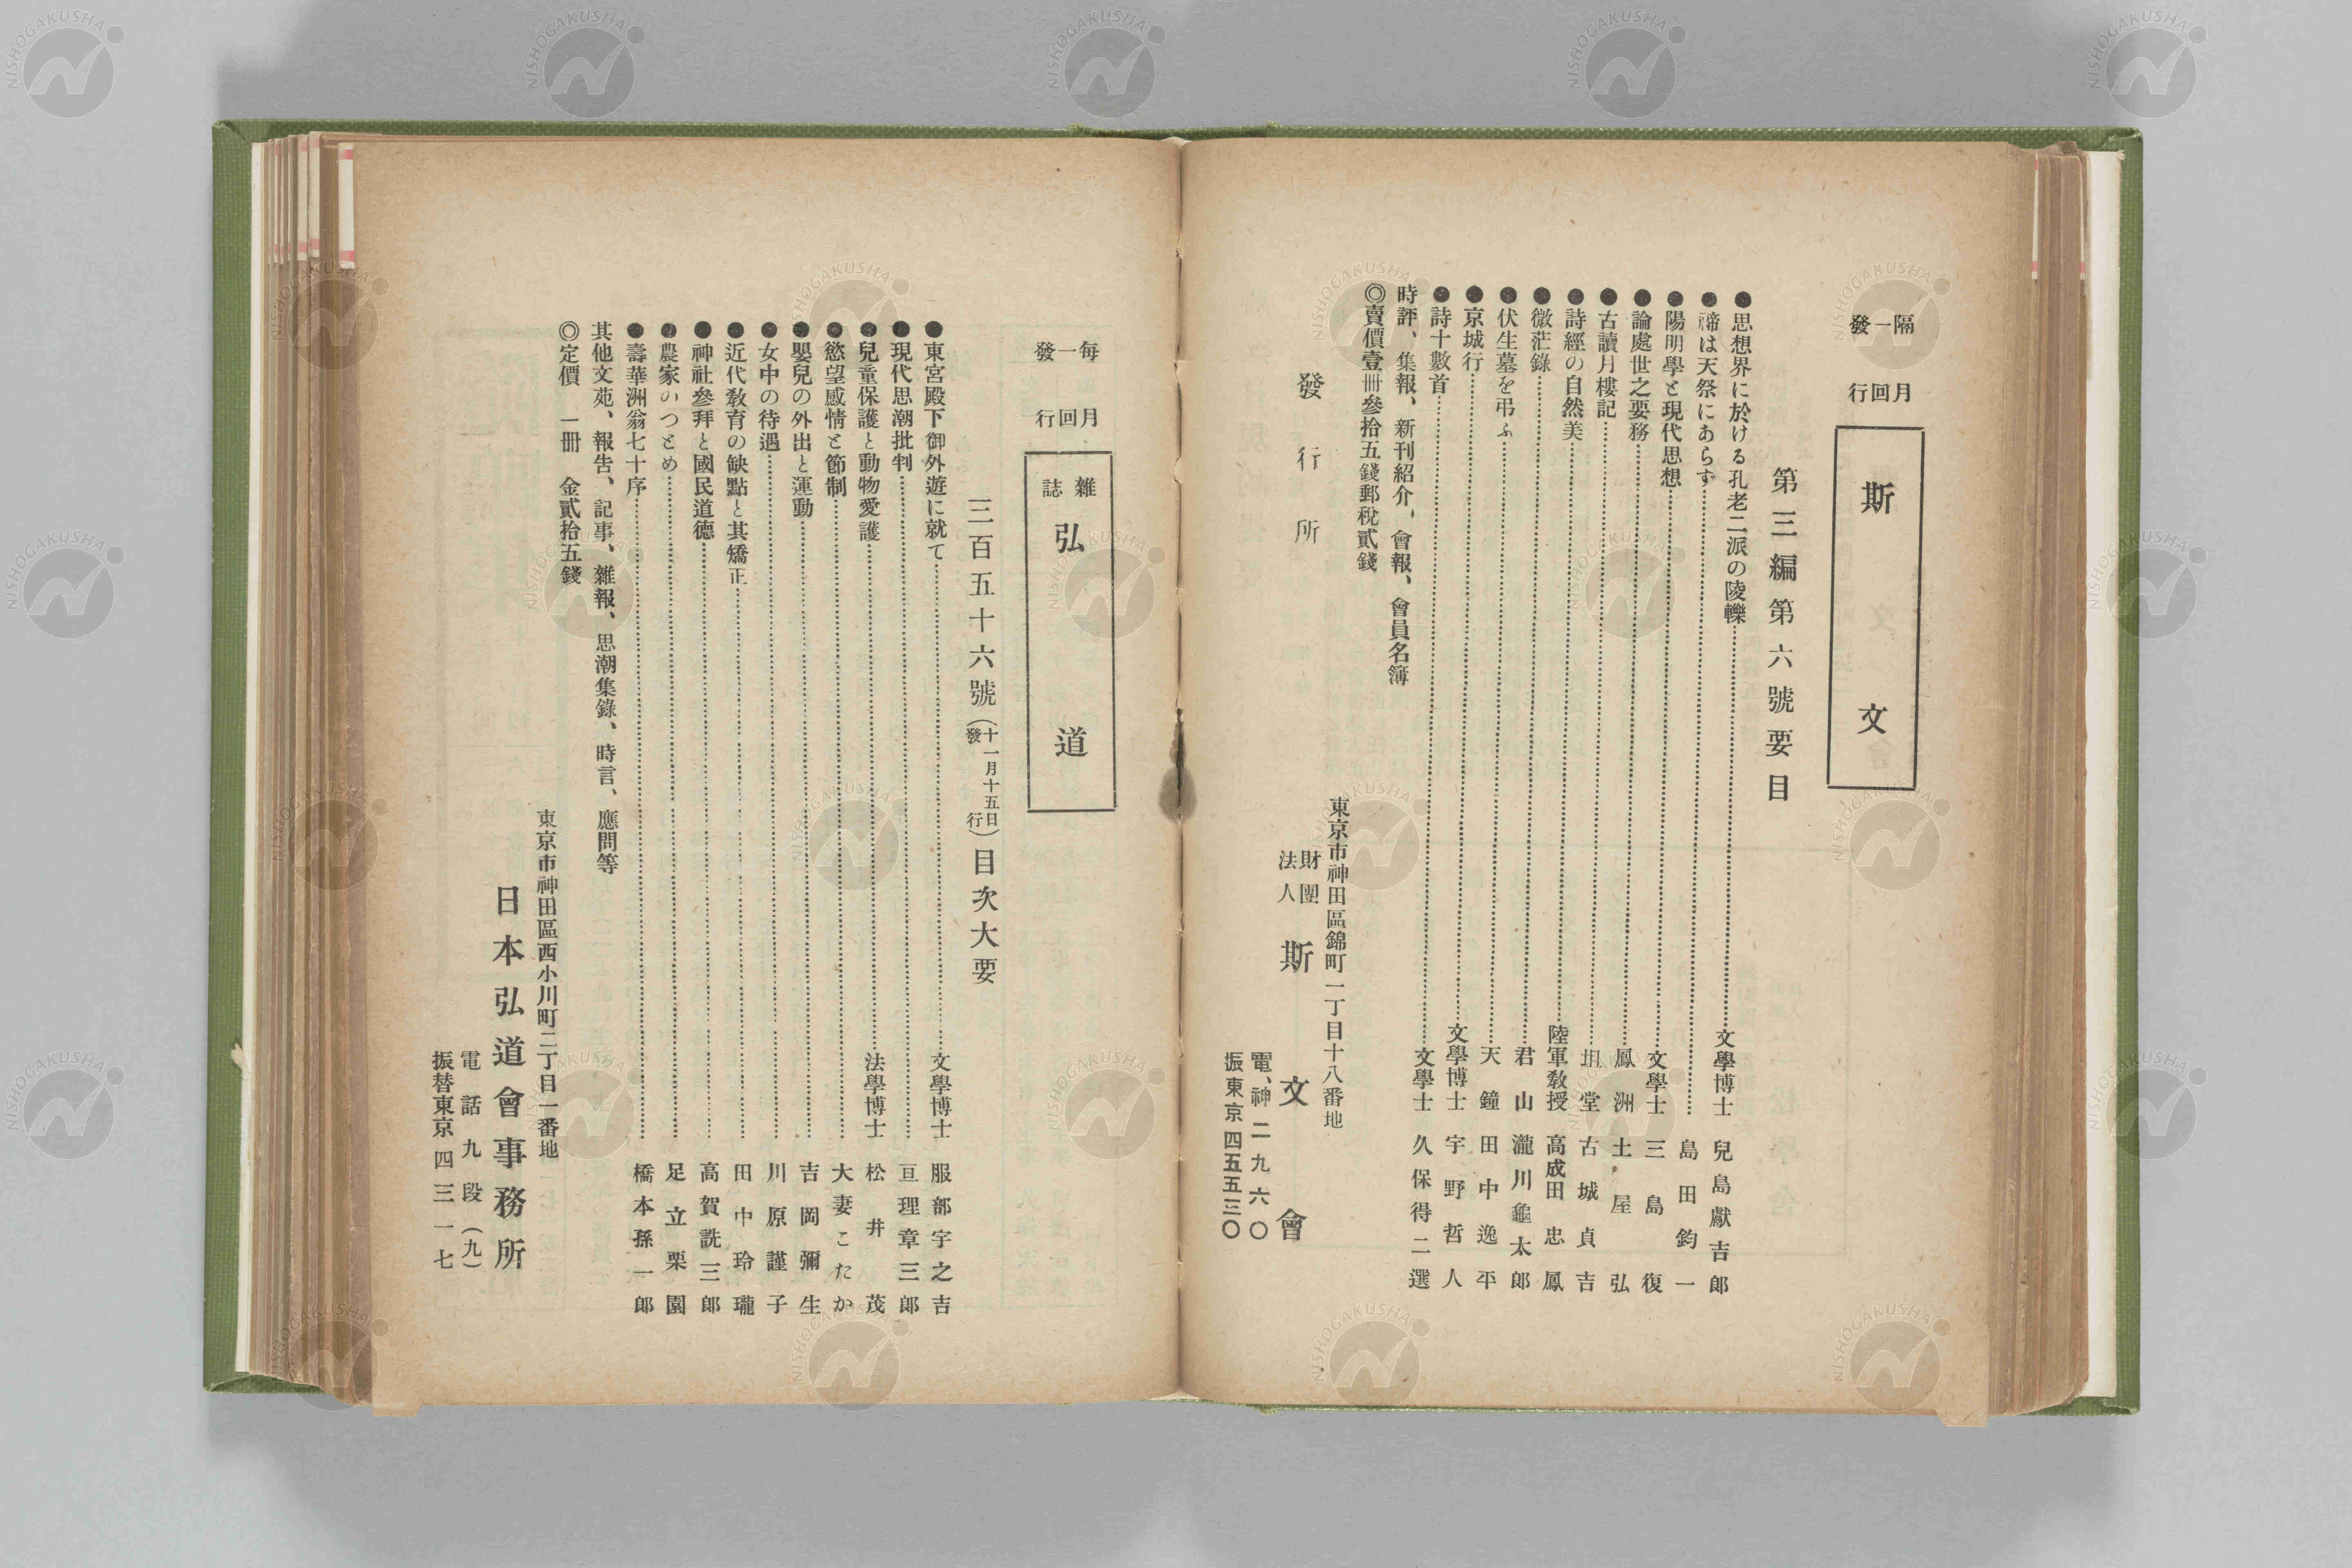 隔月
一回
發行
斯文
第三編第六號要目
●思想界に於ける孔老二派の陵轢……文學博士 兒島獻吉郎
●禘は天祭にあらず……島田鈞一
●陽明學と現代思想……文學士 三島復
●論處世之要務……鳳洲 土屋弘
●古讀月樓記……坦堂 古城貞吉
●詩經の自然美……陸軍教授 高成田忠鳳
●微茫錄……君山 瀧川龜太郎
●伏生墓を弔ふ……天鐘 田中逸平
●京城行……文學博士 宇野哲人
●詩十數首……文學士 久保得二選
時評、集報、新刊紹介、會報、會員名簿
◎賣價壹冊參拾五錢郵稅貳錢
東京市神田區錦町一丁目十八番地
發行所 財團法人 斯文會
電、神二九六〇
振東京四五五三〇
每月
一回
發行
雜誌 弘道
三百五十六號(十一月十五日發行)目次大要
●東宮殿下御外遊に就て……文學博士 服部宇之吉
●現代思潮批判……亘理章三郎
●兒童保護と動物愛護……法學博士 松井茂
●慾望感情と節制……大妻こたか
●嬰兒の外出と運動……吉岡彌生
●女中の待遇……川原謹子
●近代教育の缺點と其矯正……田中玲瓏
●神社參拜と國民道德……高賀詵三郎
●農家のつとめ……足立栗園
●壽華洲翁七十序……橋本孫一郎
其他文苑、報告、記事、雜報、思潮集錄、時言、應問等
◎定價 一冊 金貳拾五錢
東京市神田區西小川町二丁目一番地
日本弘道會事務所
電話九段(九)
振替東京四三一七
NISHOGAKUSHA